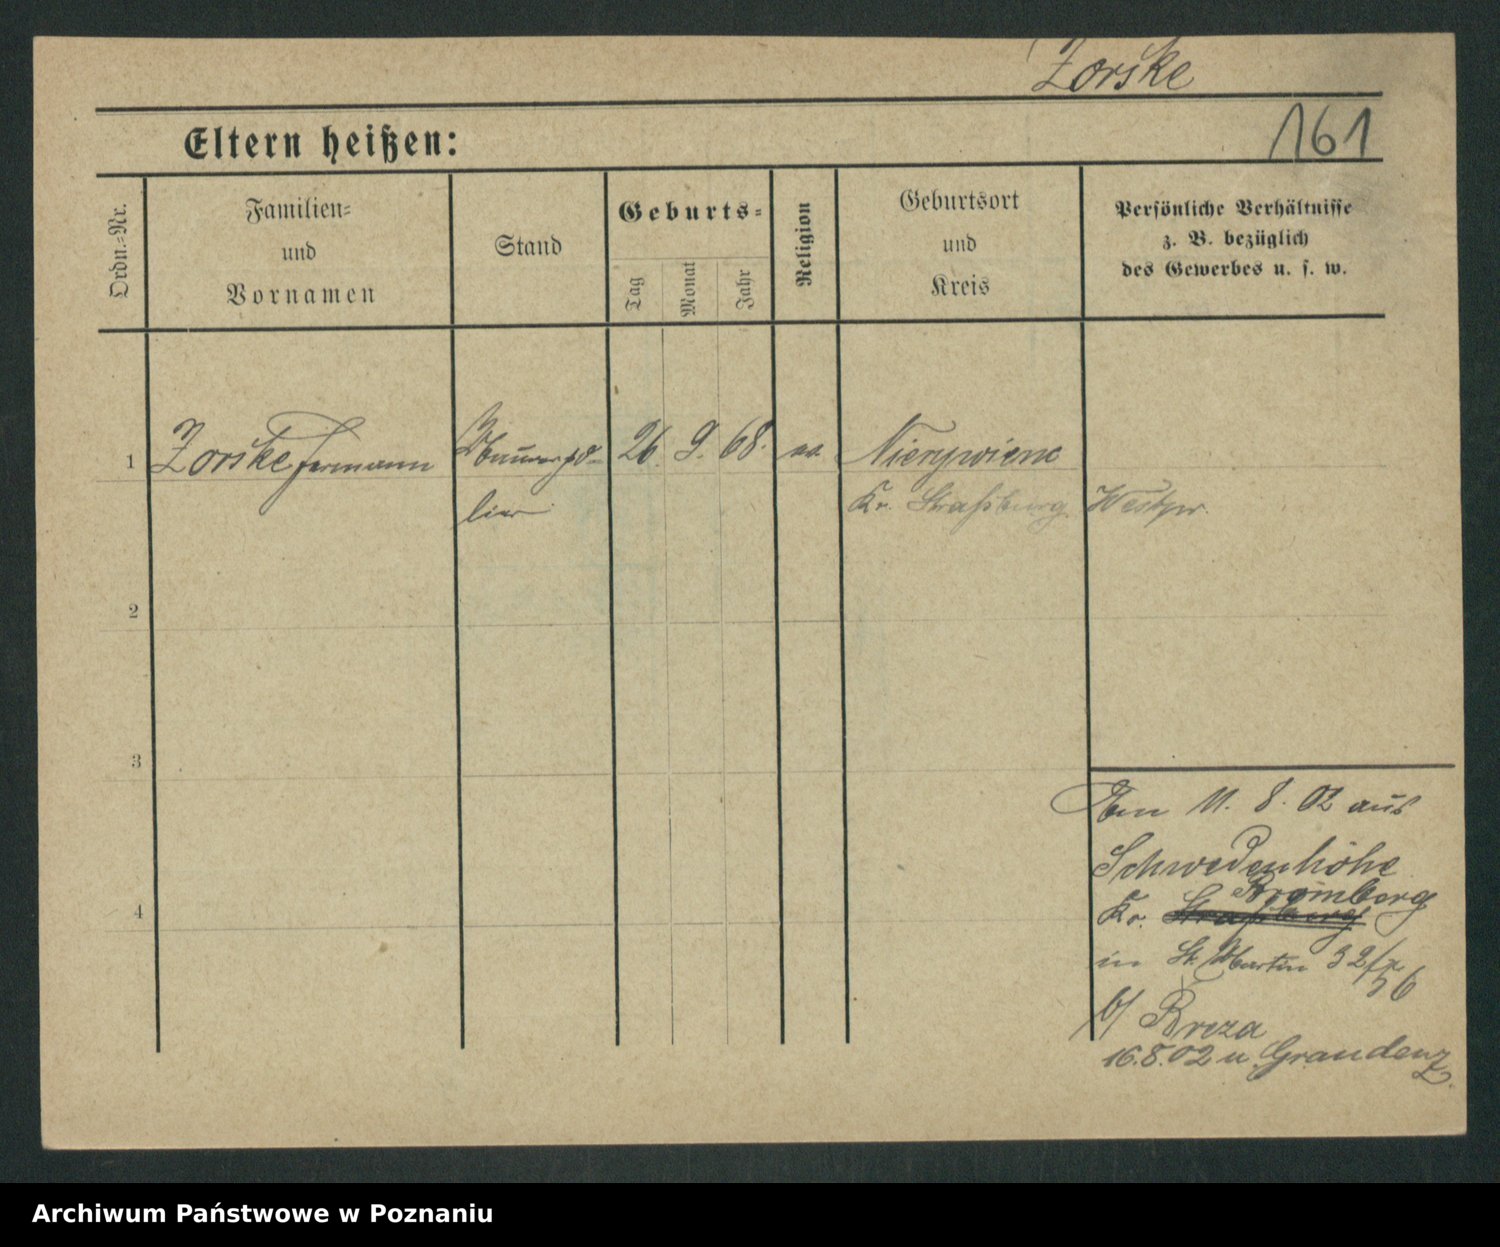 Zorske
Eltern heißen:
161
Ordn.=Nr.
Familien=
und
Vornamen
Stand
Geburts=
Tag
Monat
Jahr
Religion
Geburtsort
und
Kreis
Persönliche Verhältnisse
z. B. bezüglich
des Gewerbes u. s. w.
1 Zorske Hermann Maurerpo- 26. 9. 68. ev. 
lier Kr. Straßburg Westpr.
2
3
4
Am 11. 8. 02 aus
Schwedenhöhe
Bromberg
Kr. Straßburg
in St. Martin 32/
b/ Breza
16.8.02 n Graudenz
Archiwum Państwowe w Poznaniu